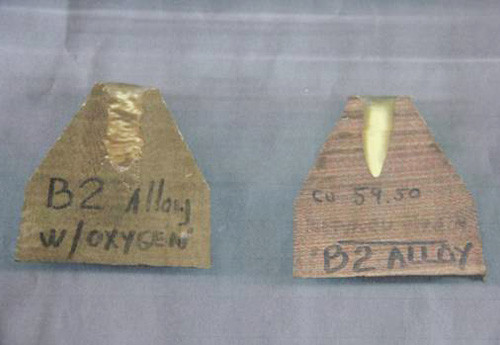 B2 Alloy
W/OXYGEN
CU 59.50
B2 ALLOY